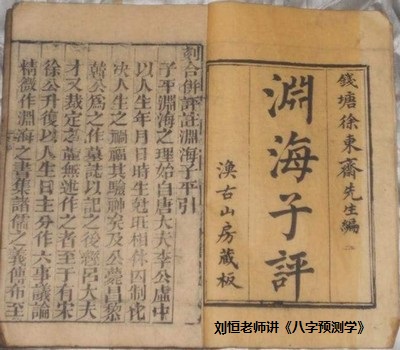 錢塘徐東齋先生編 二
淵海子評
渙古山房藏板
刻合併評註淵海子平引
子平淵海之理始自唐大夫李公虛中
以人生年月日時生尅旺相休囚制化
决人生之禍福其驗神矣及公薨昌黎
韓公爲之作墓誌以記之後經呂大夫
才又裁定之並無述作之者至于有宋
徐公升復以人生日主分作六事議論
精微作淵海之書集諸儒之義傳布至
刘恒老师讲《八字预测学》